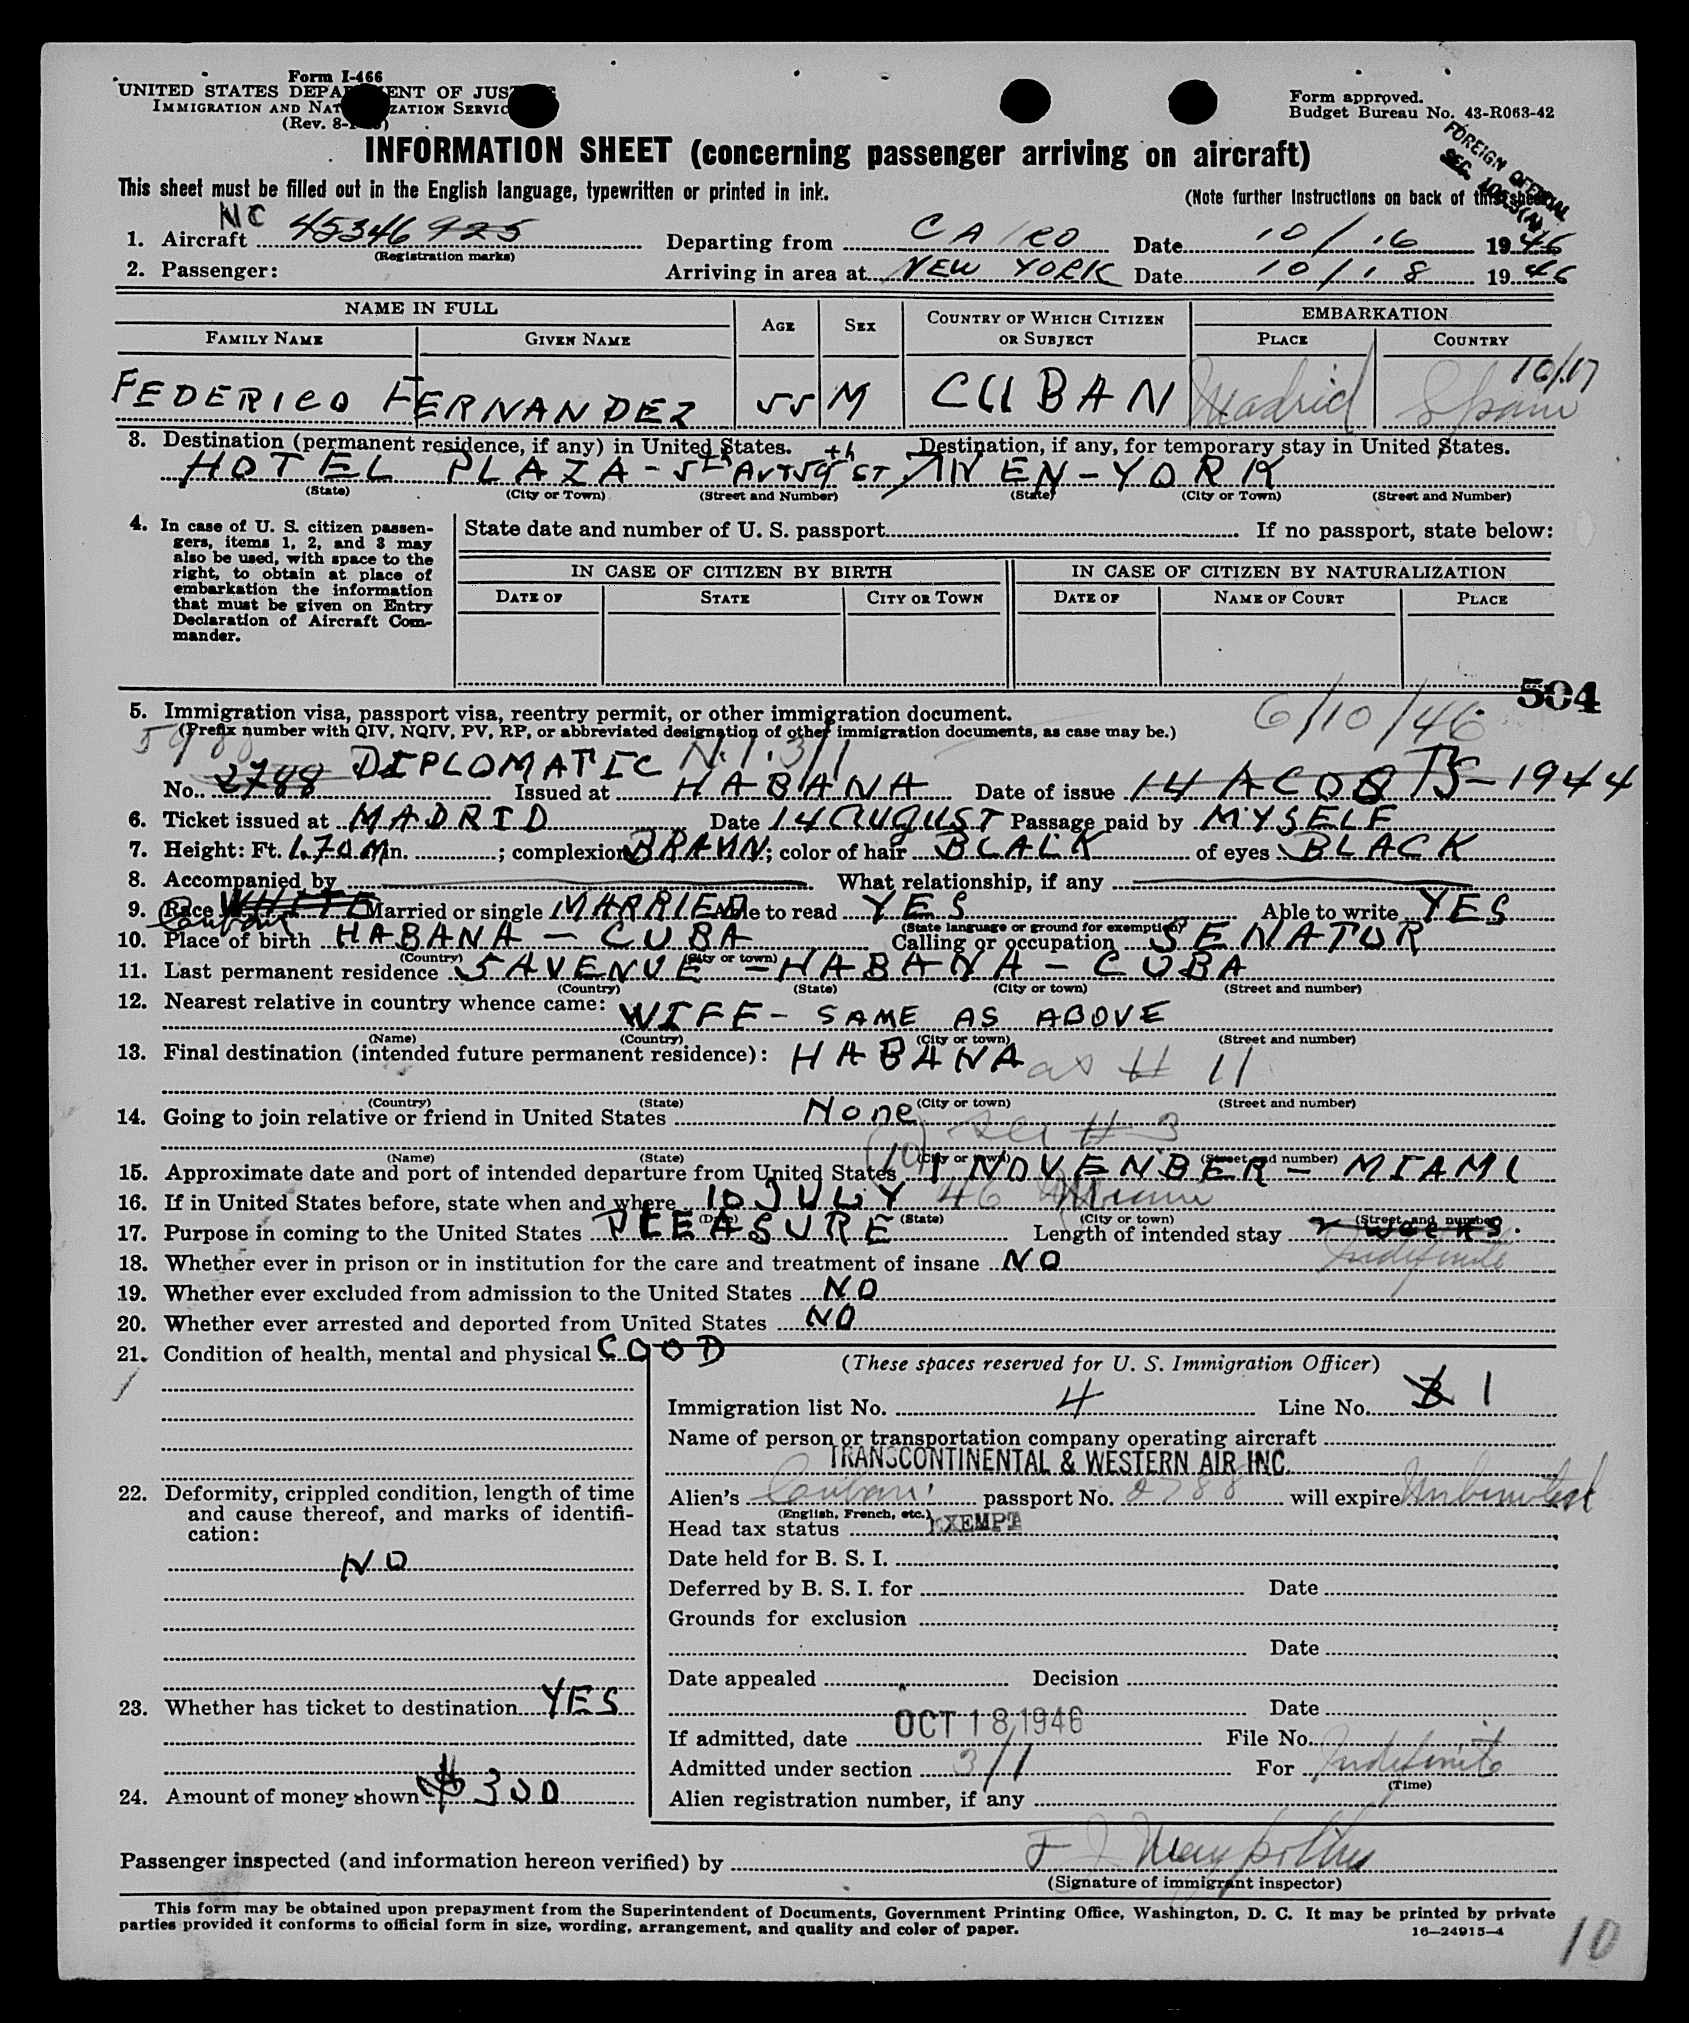 Form I-466
UNITED STATES DEPARTMENT OF JUSTICE
IMMIGRATION AND NATURALIZATION SERVICE
(Rev. 8-
Form approved.
Budget Bureau No. 43-R063-42
FOREIGN OFFICIAL
INFORMATION SHEET (concerning passenger arriving on aircraft)
This sheet must be filled out in the English language, typewritten or printed in ink.
(Note further instructions on back of this sheet)
1. Aircraft NC 45346 925 (Registration marks) Departing from CAIRO Date 10/16 1946
2. Passenger: Arriving in area at NEW YORK Date 10/18 1946
NAME IN FULL
FAMILY NAME GIVEN NAME AGE SEX COUNTRY OF WHICH CITIZEN OR SUBJECT EMBARKATION PLACE COUNTRY
10/17
FEDERICO FERNANDEZ 55 M CUBAN Madrid Spain
3. Destination (permanent residence, if any) in United States. Destination, if any, for temporary stay in United States.
HOTEL PLAZA - 5th AV Y 59th ST NEN-YORK
(State) (City or Town) (Street and Number) (State) (City or Town) (Street and Number)
4. In case of U. S. citizen passengers, items 1, 2, and 3 may also be used, with space to the right, to obtain at place of embarkation the information that must be given on Entry Declaration of Aircraft Commander.
State date and number of U. S. passport If no passport, state below:
IN CASE OF CITIZEN BY BIRTH IN CASE OF CITIZEN BY NATURALIZATION
DATE OF STATE CITY OR TOWN DATE OF NAME OF COURT PLACE
504
5. Immigration visa, passport visa, reentry permit, or other immigration document. 6/10/46
(Prefix number with QIV, NQIV, PV, RP, or abbreviated designation of other immigration documents, as case may be.)
No. 2788 DIPLOMATIC 3/1 Issued at HABANA Date of issue 14 AGOSTS-1944
6. Ticket issued at MADRID Date 14 AUGUST Passage paid by MYSELF
7. Height: Ft. 1.70 M In. ; complexion BRAUN; color of hair BLALK of eyes BLACK
8. Accompanied by What relationship, if any
9. Race WHITE Cuban Married or single MARRIED Able to read YES Able to write YES
(State language or ground for exemption)
10. Place of birth HABANA - CUBA Calling or occupation SENATOR
(Country) (City or town)
11. Last permanent residence 5 AVENUE - HABANA - CUBA
(Country) (State) (City or town) (Street and number)
12. Nearest relative in country whence came: WIFE - SAME AS ABOVE
(Name) (Country) (City or town) (Street and number)
13. Final destination (intended future permanent residence): HABANA as # 11
(Country) (State) (City or town) (Street and number)
14. Going to join relative or friend in United States None # 3
(Name) (State) (City or town) (Street and number)
15. Approximate date and port of intended departure from United States 1 NOVENBER - MIAMI
16. If in United States before, state when and where 10 JULY 46 Miami
(Date) (State) (City or town) (Street and number)
17. Purpose in coming to the United States PLEASURE Length of intended stay 2 weeks. Indefinite
18. Whether ever in prison or in institution for the care and treatment of insane NO
19. Whether ever excluded from admission to the United States NO
20. Whether ever arrested and deported from United States NO
21. Condition of health, mental and physical GOOD
(These spaces reserved for U. S. Immigration Officer)
Immigration list No. 4 Line No. 1
Name of person or transportation company operating aircraft
TRANSCONTINENTAL & WESTERN AIR INC.
22. Deformity, crippled condition, length of time and cause thereof, and marks of identification:
NO
Alien's Cuban passport No. 2788 will expire
(English, French, etc.)
Head tax status EXEMPT
Date held for B. S. I.
Deferred by B. S. I. for Date
Grounds for exclusion
Date
Date appealed Decision
23. Whether has ticket to destination YES
Date
If admitted, date OCT 18 1946 File No.
Admitted under section 3/1 For Indefinite
(Time)
24. Amount of money shown $300
Alien registration number, if any
Passenger inspected (and information hereon verified) by
(Signature of immigrant inspector)
This form may be obtained upon prepayment from the Superintendent of Documents, Government Printing Office, Washington, D. C. It may be printed by private
parties provided it conforms to official form in size, wording, arrangement, and quality and color of paper.
16—24915-4
10